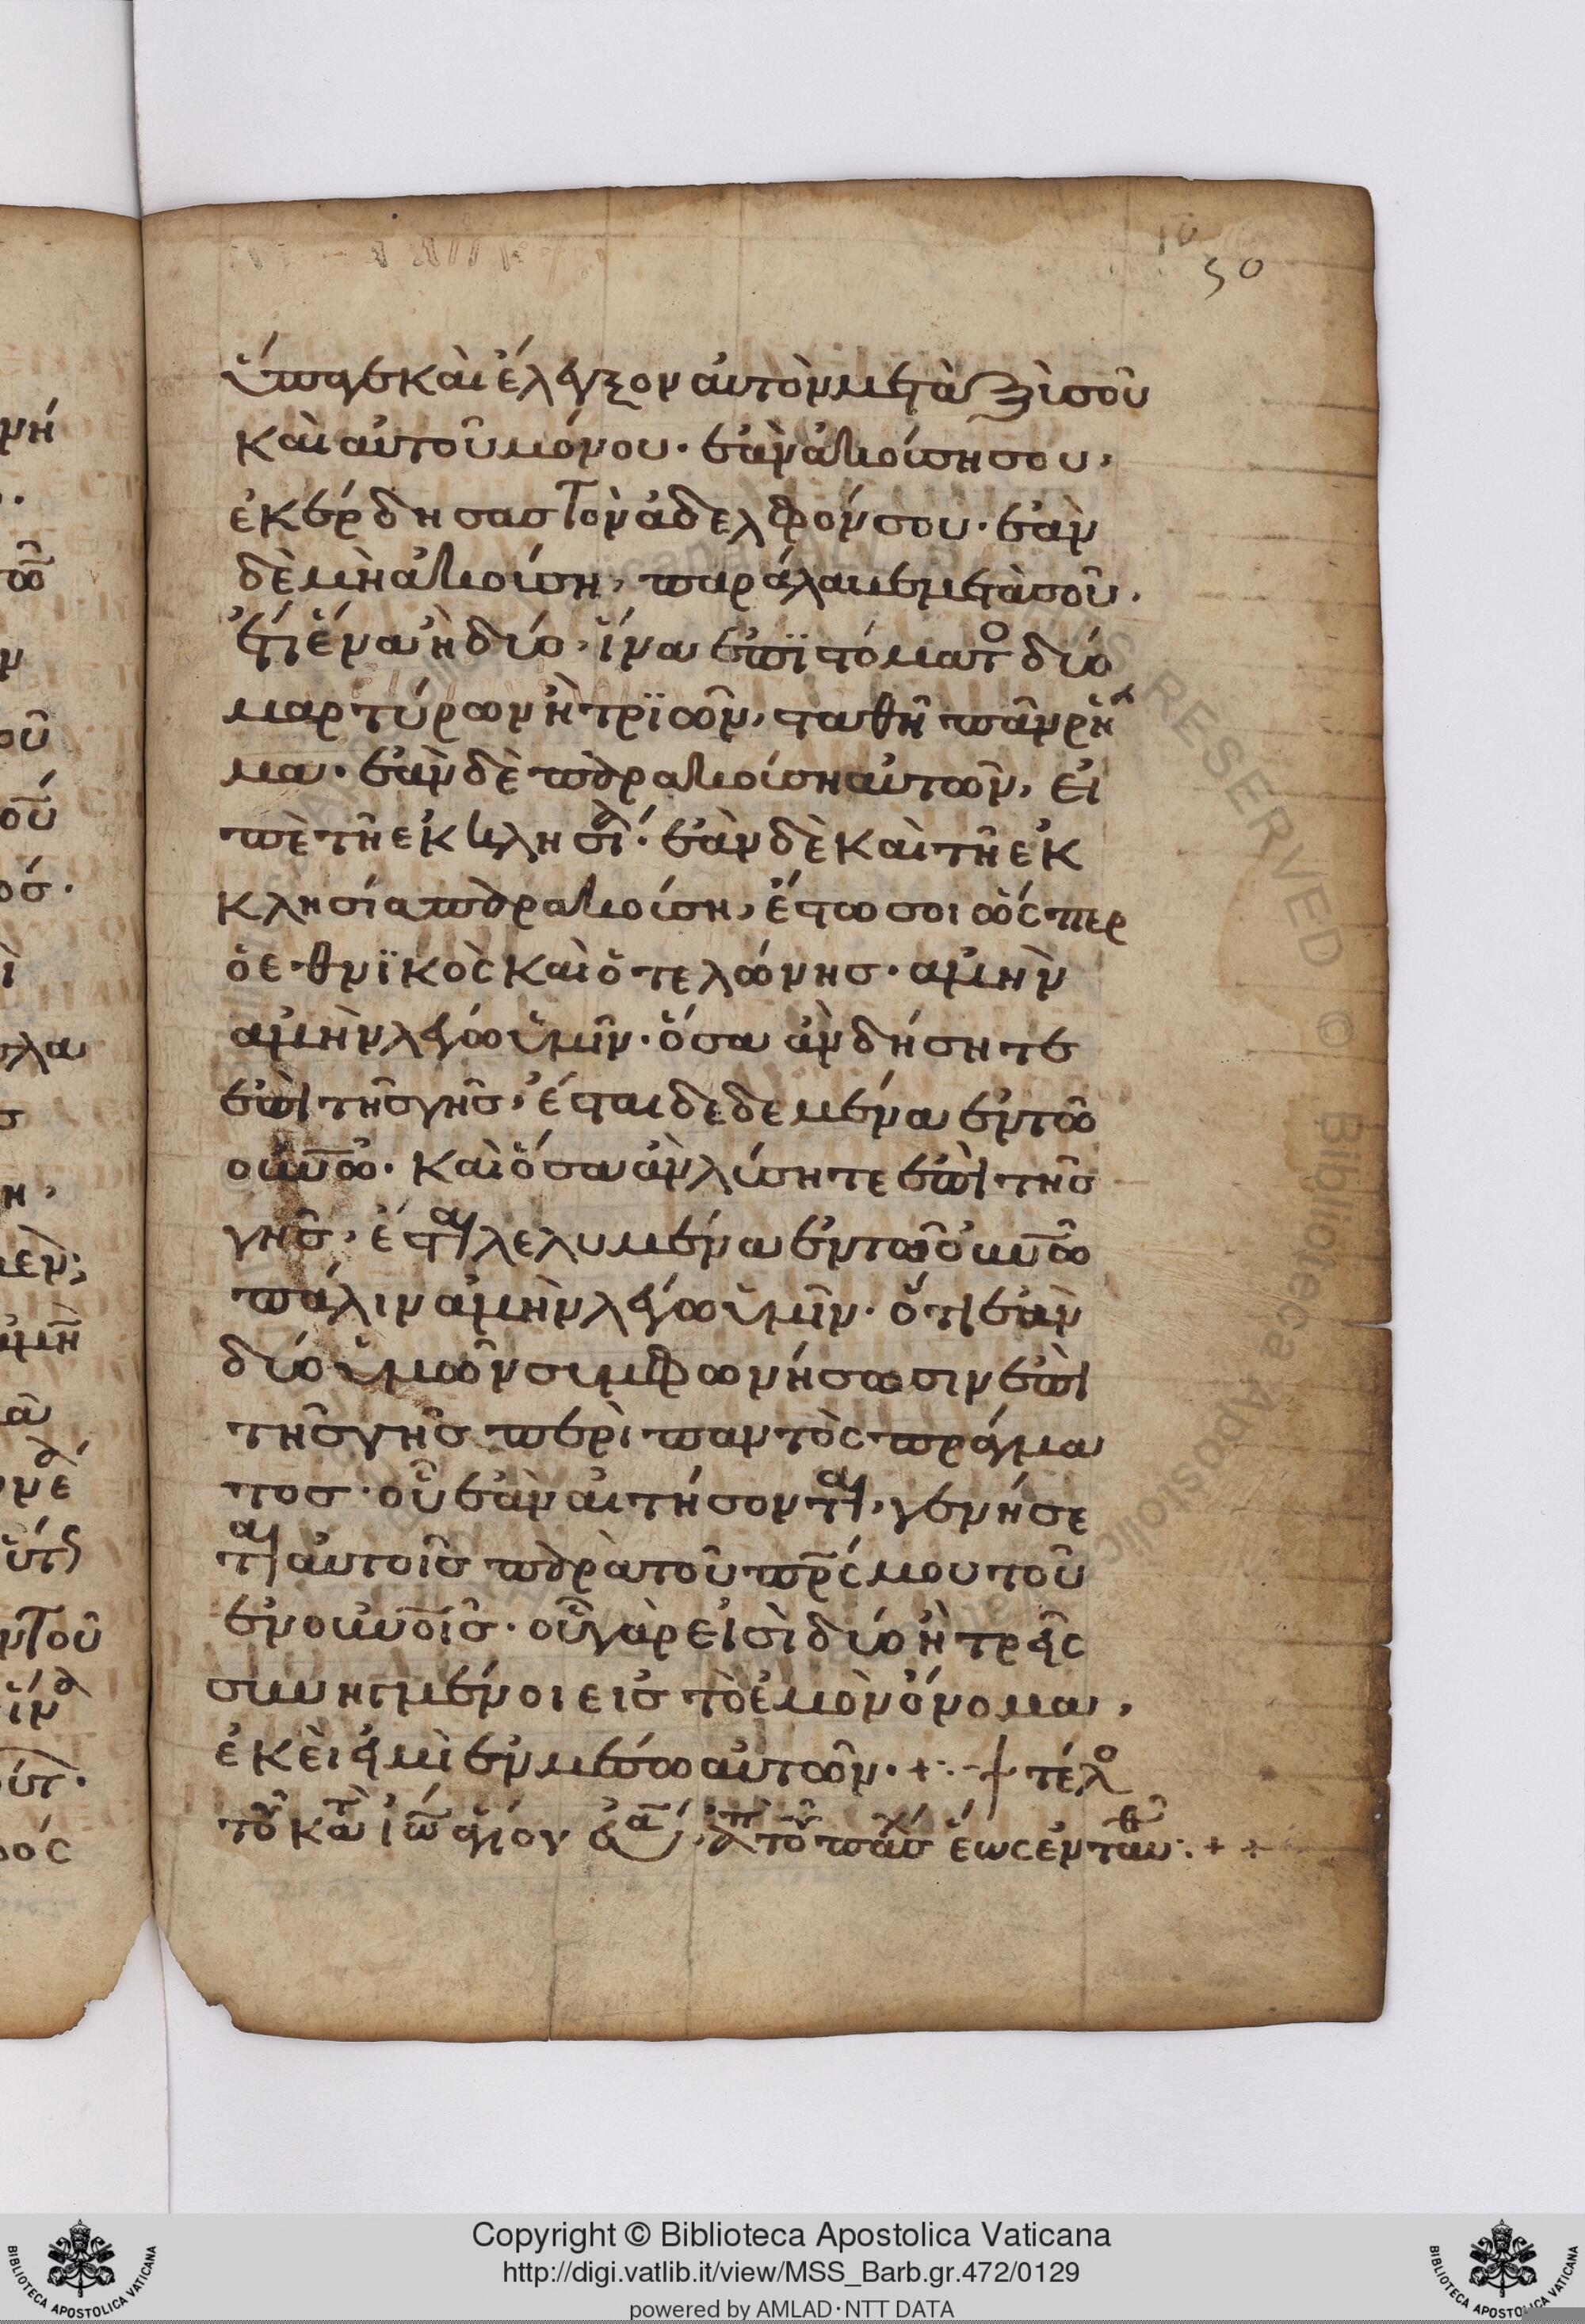 50
ὕπαγε καὶ ἔλεγξον αὐτὸν μεταξὶ σοῦ
καὶ αὐτοῦ μόνου· ἐάν ἀκούση σου,
ἐκέρδησας τὸν ἀδελφόν σου· ἐὰν
δὲ μὴ ἀκούση, παράλαμε μετὰ σοῦ.
ἔτι ἕνα ἢ δύο· ἵνα ἐπὶ στόματο δύο
μαρτύρων ἢ τριῶν, σταθῆ πᾶν ρῆ
μα· ἐὰν δὲ παρακούση αὐτῶν, εἰ
πὲ τῆ ἐκκλησία· ἐὰν δὲ καὶ τῆ ἐκ
κλησία παρακούση, ἔστω σοι ὥσπερ
ὁ ἐθνικὸς καὶ ὁ τελώνης· ἀμὴν
ἀμὴν λέγω ὑμῖν· ὅσα ἀν δήσητε
ἐπὶ τῆς γῆς, ἔσται δεδεμένα ἐν τῶ
οὐνῶ· καὶ ὅσα ἀν λύσητε ἐπὶ τῆς
γῆς, ἔσται λελυμένα ἐν τῶ οὐνῶ
πάλιν ἀμὴν λέγω ὑμῖν· ὅτι ἐὰν
δύο ὑμῶν συμφωνήσωσιν ἐπὶ
τῆς γῆς περὶ παντὸς πράγμα
τος· οὗ ἐὰν αἰτήσονται, γενήσε
ται αὐτοῖς παρὰ τοῦ πρς μου τοῦ
ἐν οὐνοῖς· οὗ γάρ εἰσὶ δύο ἢ τρεῖς
συνηγμένοι εἰς τὸ ἐμὸν ὄνομα,
ἐκεῖ εἰμὶ ἐν μέσω αὐτῶν· +·-+ τέλο